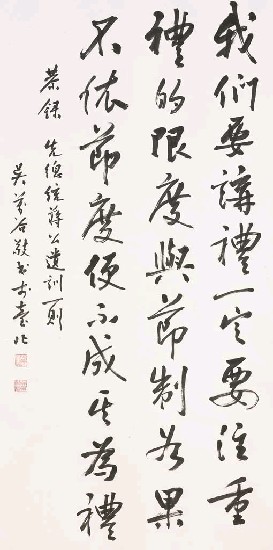 我們要講禮一定要注重
禮的限度與節制若果
不依節度便不成其為禮
恭錄 先總統蔣公遺訓一則
吳萬谷敬書於臺北